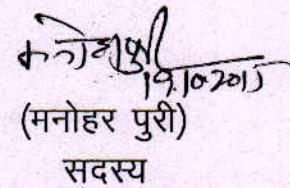 19.10.2015
(मनोहर पुरी)
सदस्य